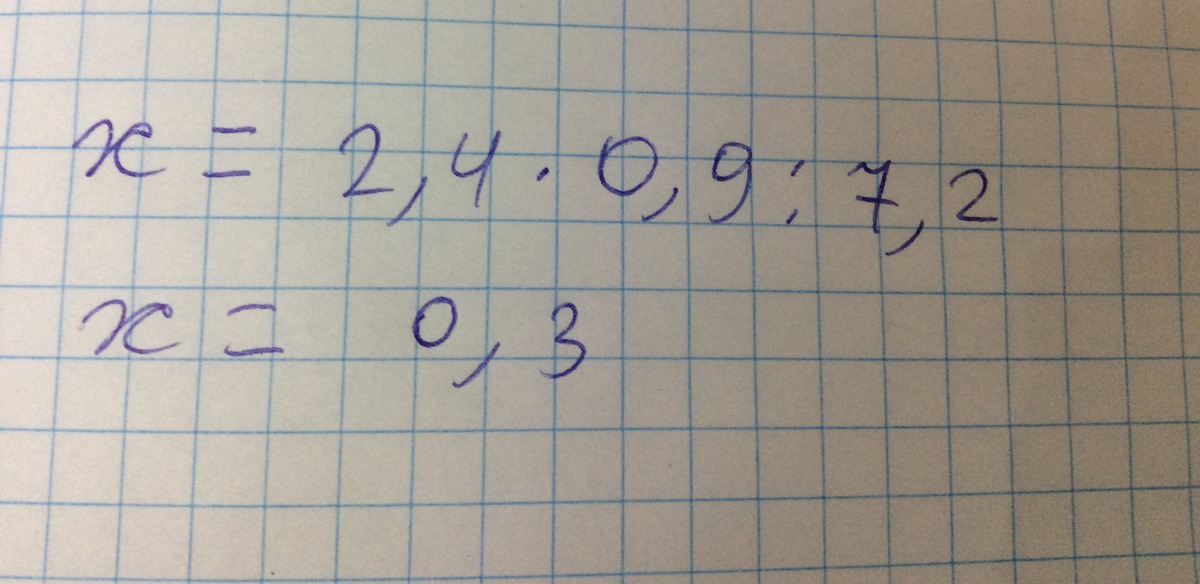 x = 2,4 · 0,9 : 7,2
x = 0,3